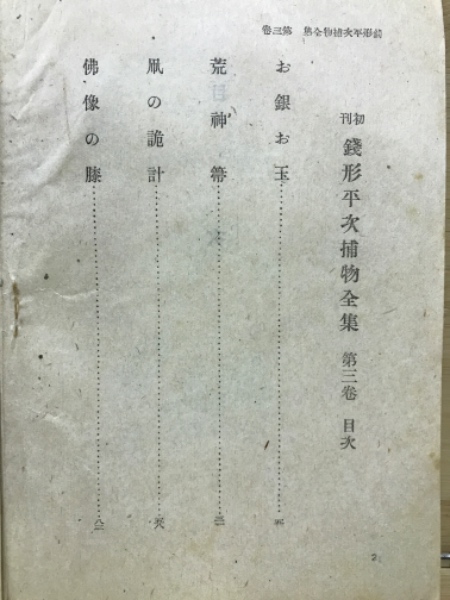 錢形平次捕物全集 第三卷
初刊 錢形平次捕物全集 第三卷 目次
お銀お玉……五
荒神箒……
凧の詭計……五八
佛像の膝……
2